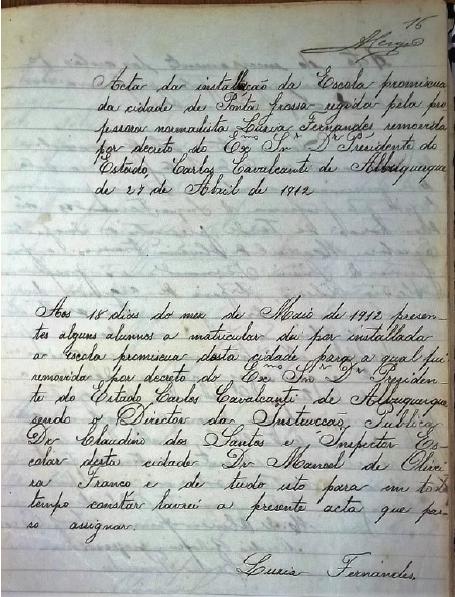 15
Acta da installação da Escola promiscua
da cidade de Ponta Grossa regida pela pro
fessora normalista Luzia Fernandes removida
por decreto do Exmo Snr Dr Presidente do
Estado, Carlos Cavalcante de Albuquerque
de 27 de Abril de 1912
Aos 18 dias do mez de Maio de 1912 presen-
tes alguns alumnos a matricular dei por installada
a Escola promiscua desta cidade para a qual fui
removida por decreto do Exmo Snr Dr Presiden-
te do Estado Carlos Cavalcanti de Albuquerque
sendo o Director da Instrucsão, Publica
Dr Claudino dos Santos e Inspector Es
colar desta cidade Dr Manoel de Olivei
ra Franco e de tudo isto para em todo
tempo constar lavrei a presente acta que pas-
so assignar.
Luzia Fernandes.